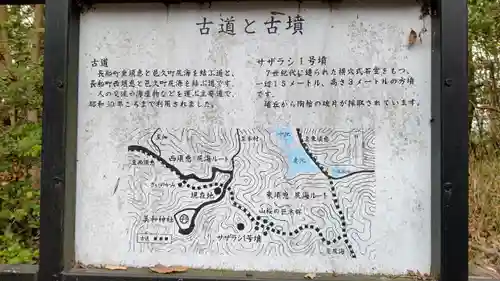 古道と古墳
古道
長船町東須恵と邑久町尻海を結ぶ道と、
長船町西須恵と邑久町尻海を結ぶ道です。
人の交流や海産物などを運ぶ主要道で、
昭和30年ころまで利用されました。
サザラシ1号墳
7世紀代に造られた横穴式石室をもつ、
一辺15メートル、高さ3メートルの方墳
です。
墳丘から陶棺の破片が採取されています。
西須恵・尻海ルート
現在地
美和神社
サザラシ1号墳
東須恵・尻海ルート
山桜の巨木群
至尻海
古道